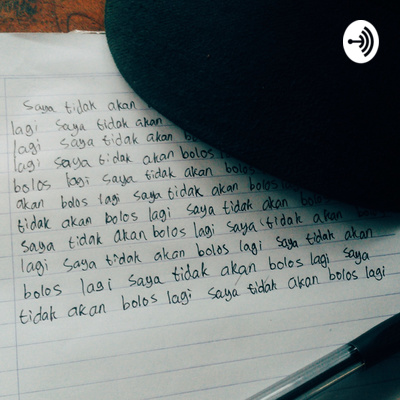 Saya tidak akan
lagi saya tidak akan
lagi saya tidak akan
lagi saya tidak akan bolos
bolos lagi saya tidak akan bolos
akan bolos lagi saya tidak akan bolos
tidak akan bolos lagi saya tidak akan
saya tidak akan bolos lagi saya tidak akan
lagi saya tidak akan bolos lagi saya tidak akan
bolos lagi saya tidak akan bolos lagi saya
tidak akan bolos lagi saya tidak akan bolos lagi